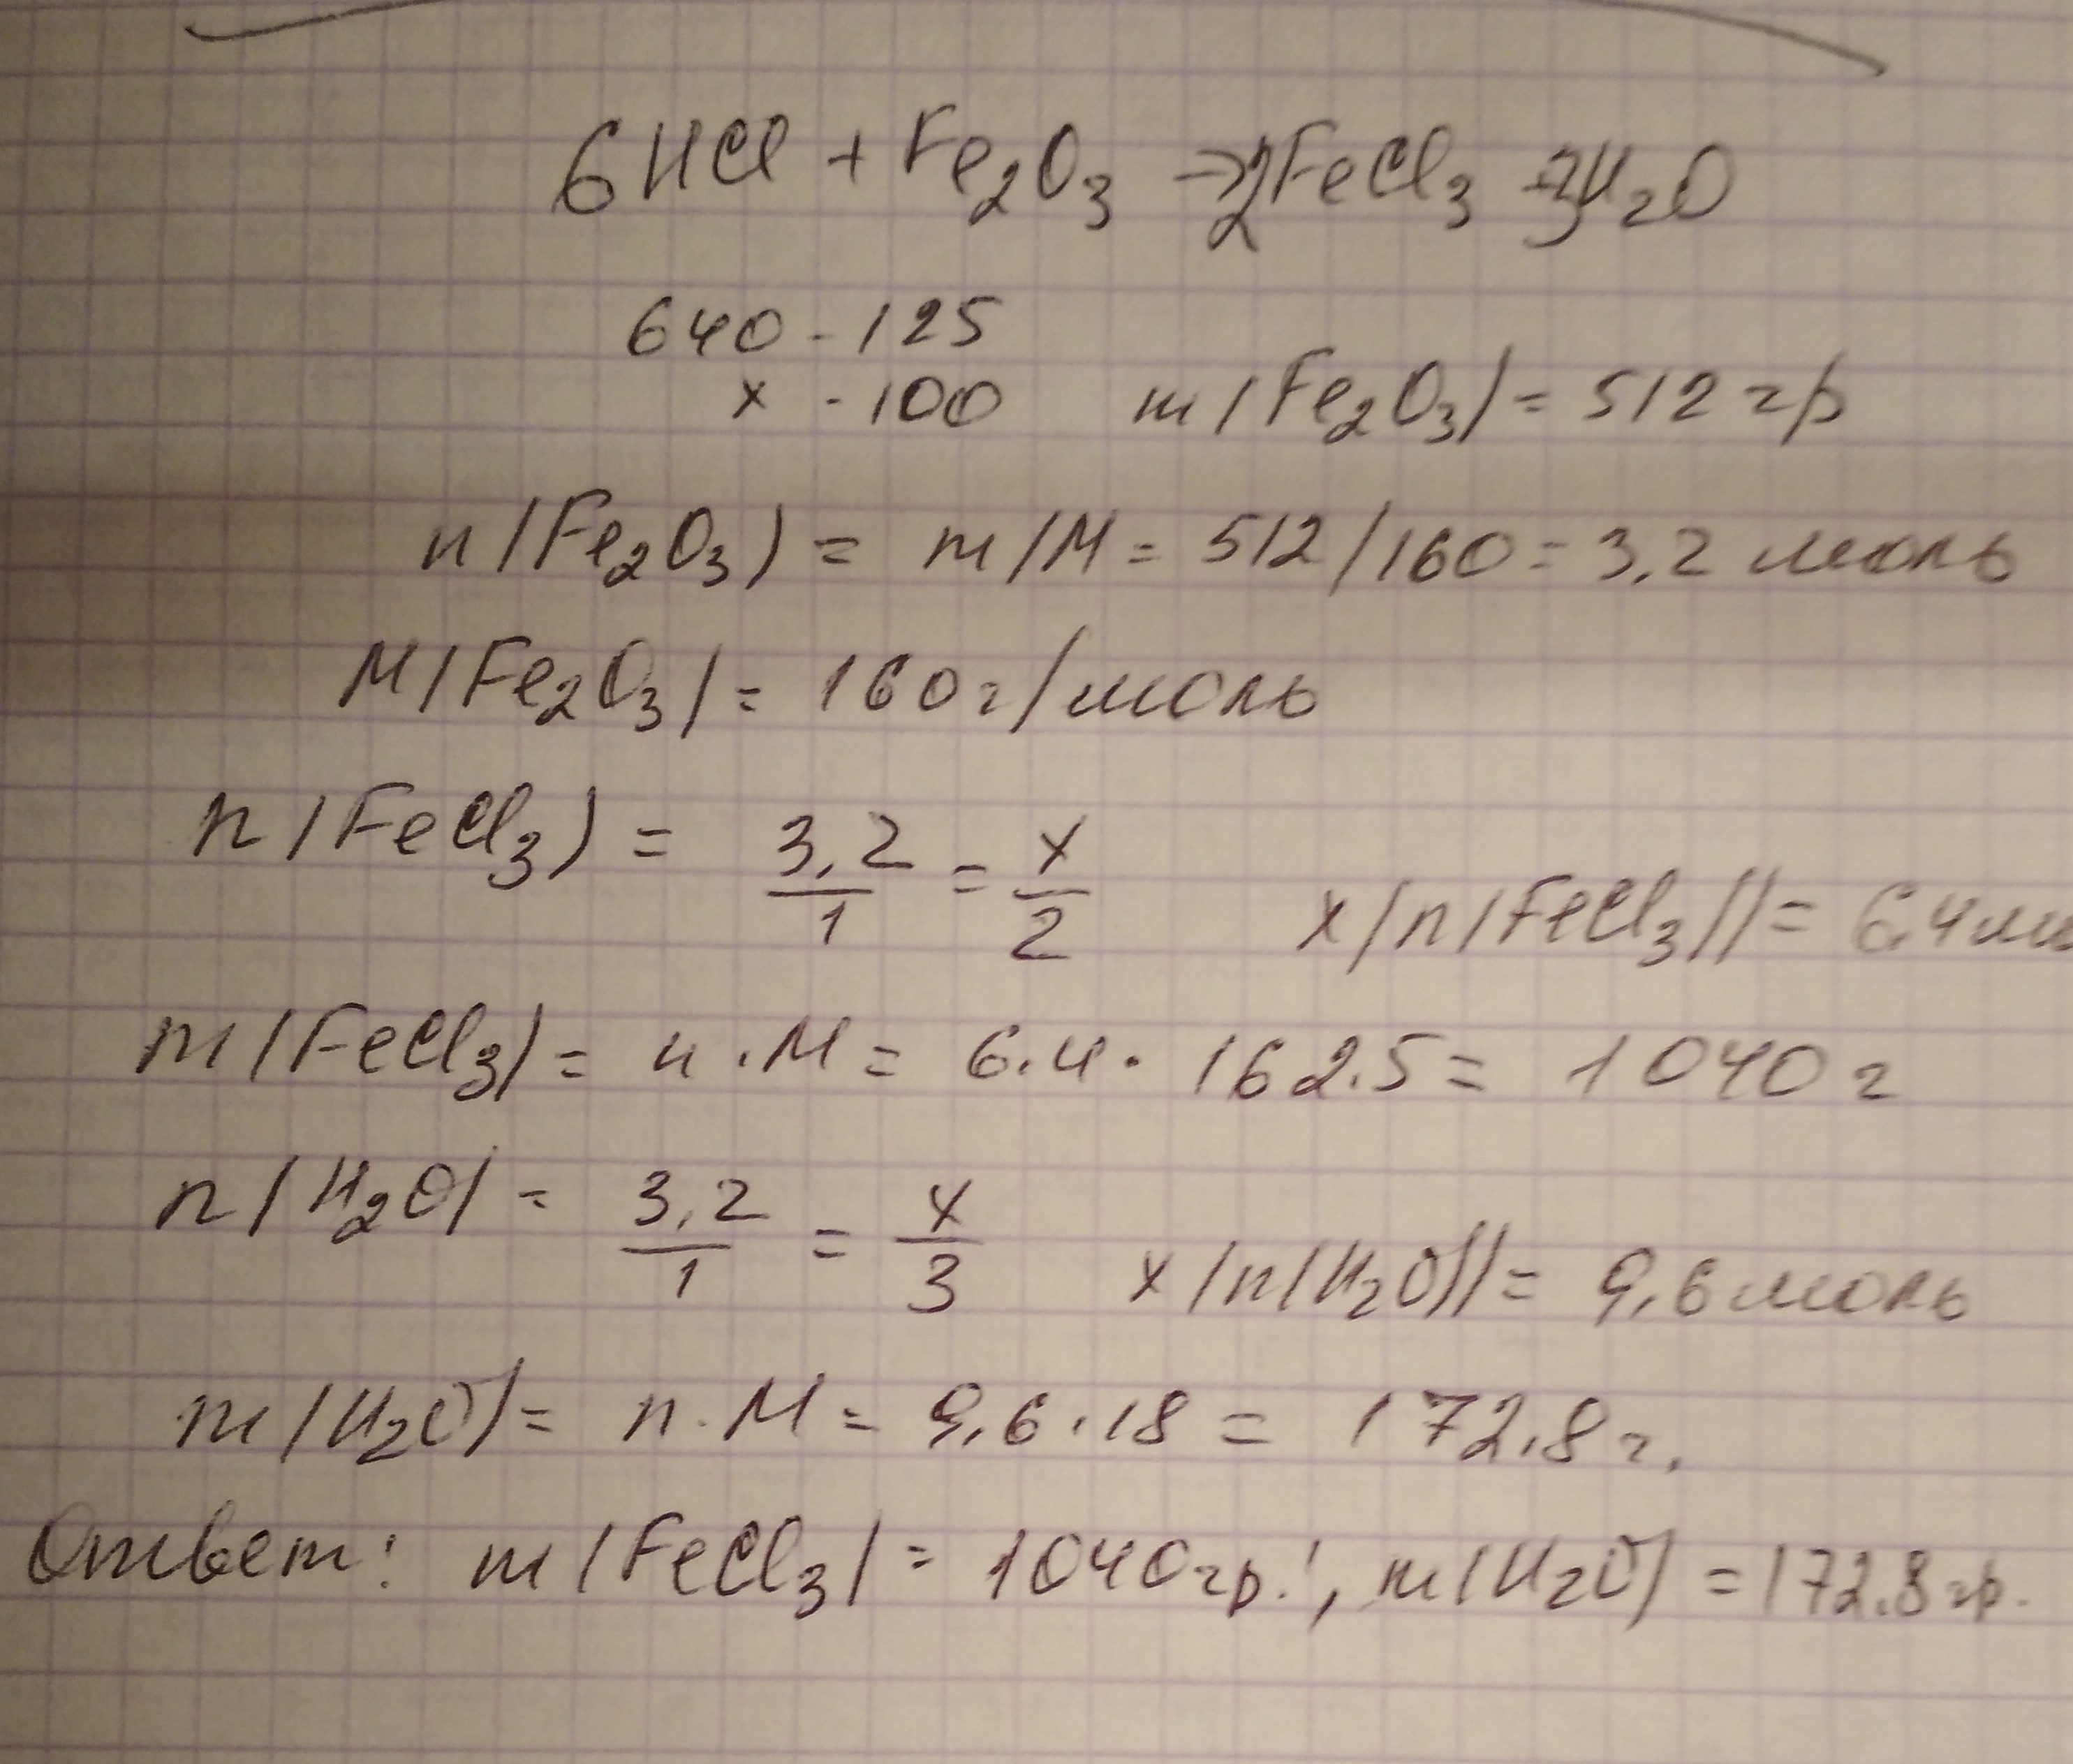 6HCl + Fe₂O₃ → 2FeCl₃ + 3H₂O
640 - 125
x - 100 m(Fe₂O₃) = 512 гр
n(Fe₂O₃) = m/M = 512/160 = 3,2 моль
M(Fe₂O₃) = 160 г/моль
n(FeCl₃) = 3,2/1 = x/2 x(n(FeCl₃)) = 6,4 мо
m(FeCl₃) = n · M = 6.4 · 162.5 = 1040 г
n(H₂O) = 3,2/1 = x/3 x(n(H₂O)) = 9,6 моль
m(H₂O) = n · M = 9,6 · 18 = 172,8 г.
Ответ: m(FeCl₃) = 1040 гр!, m(H₂O) = 172.8 гр.